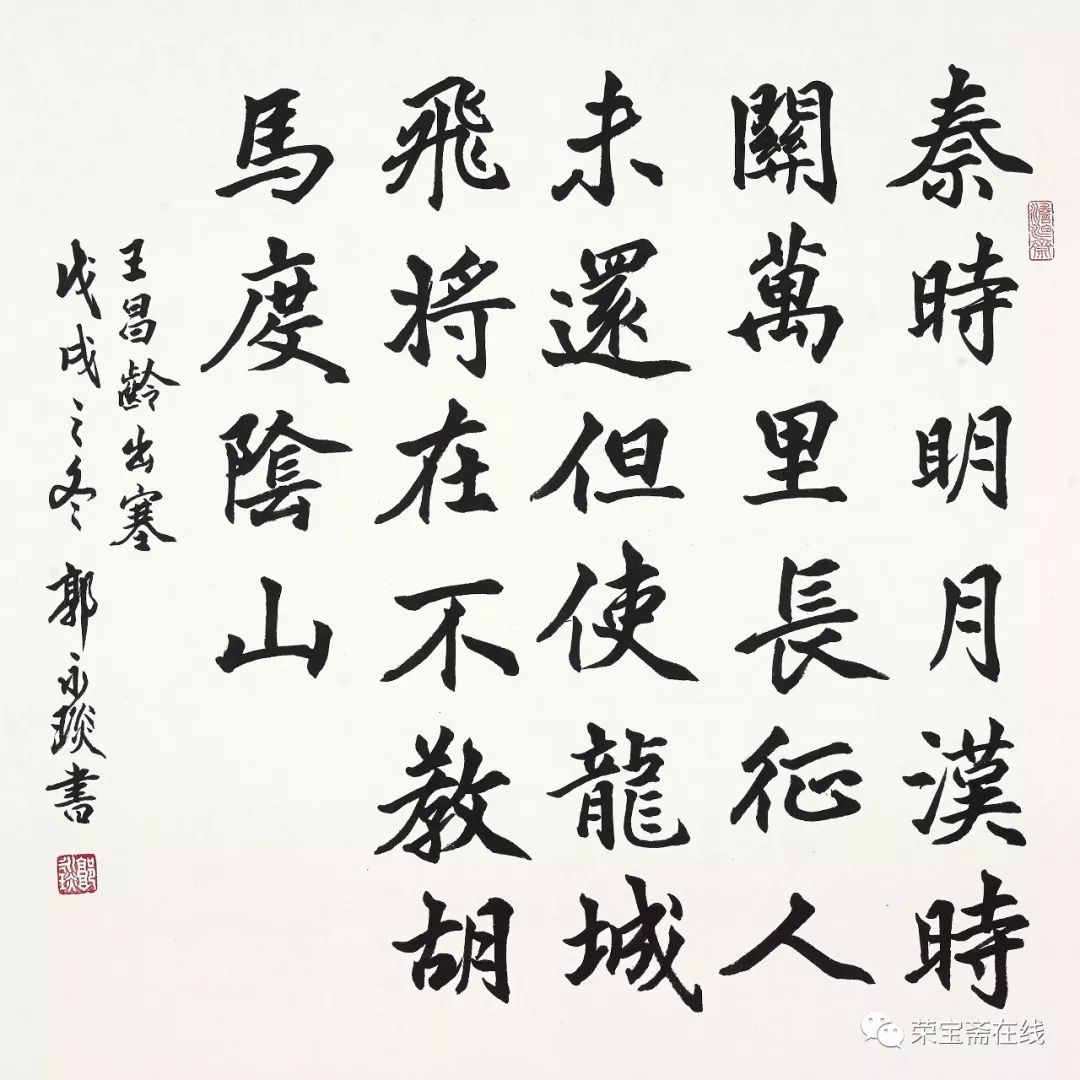 秦時明月漢時
關萬里長征人
未還但使龍城
飛將在不教胡
馬度陰山
王昌齡出塞
戊戌之冬 郭永琰書
荣宝斋在线